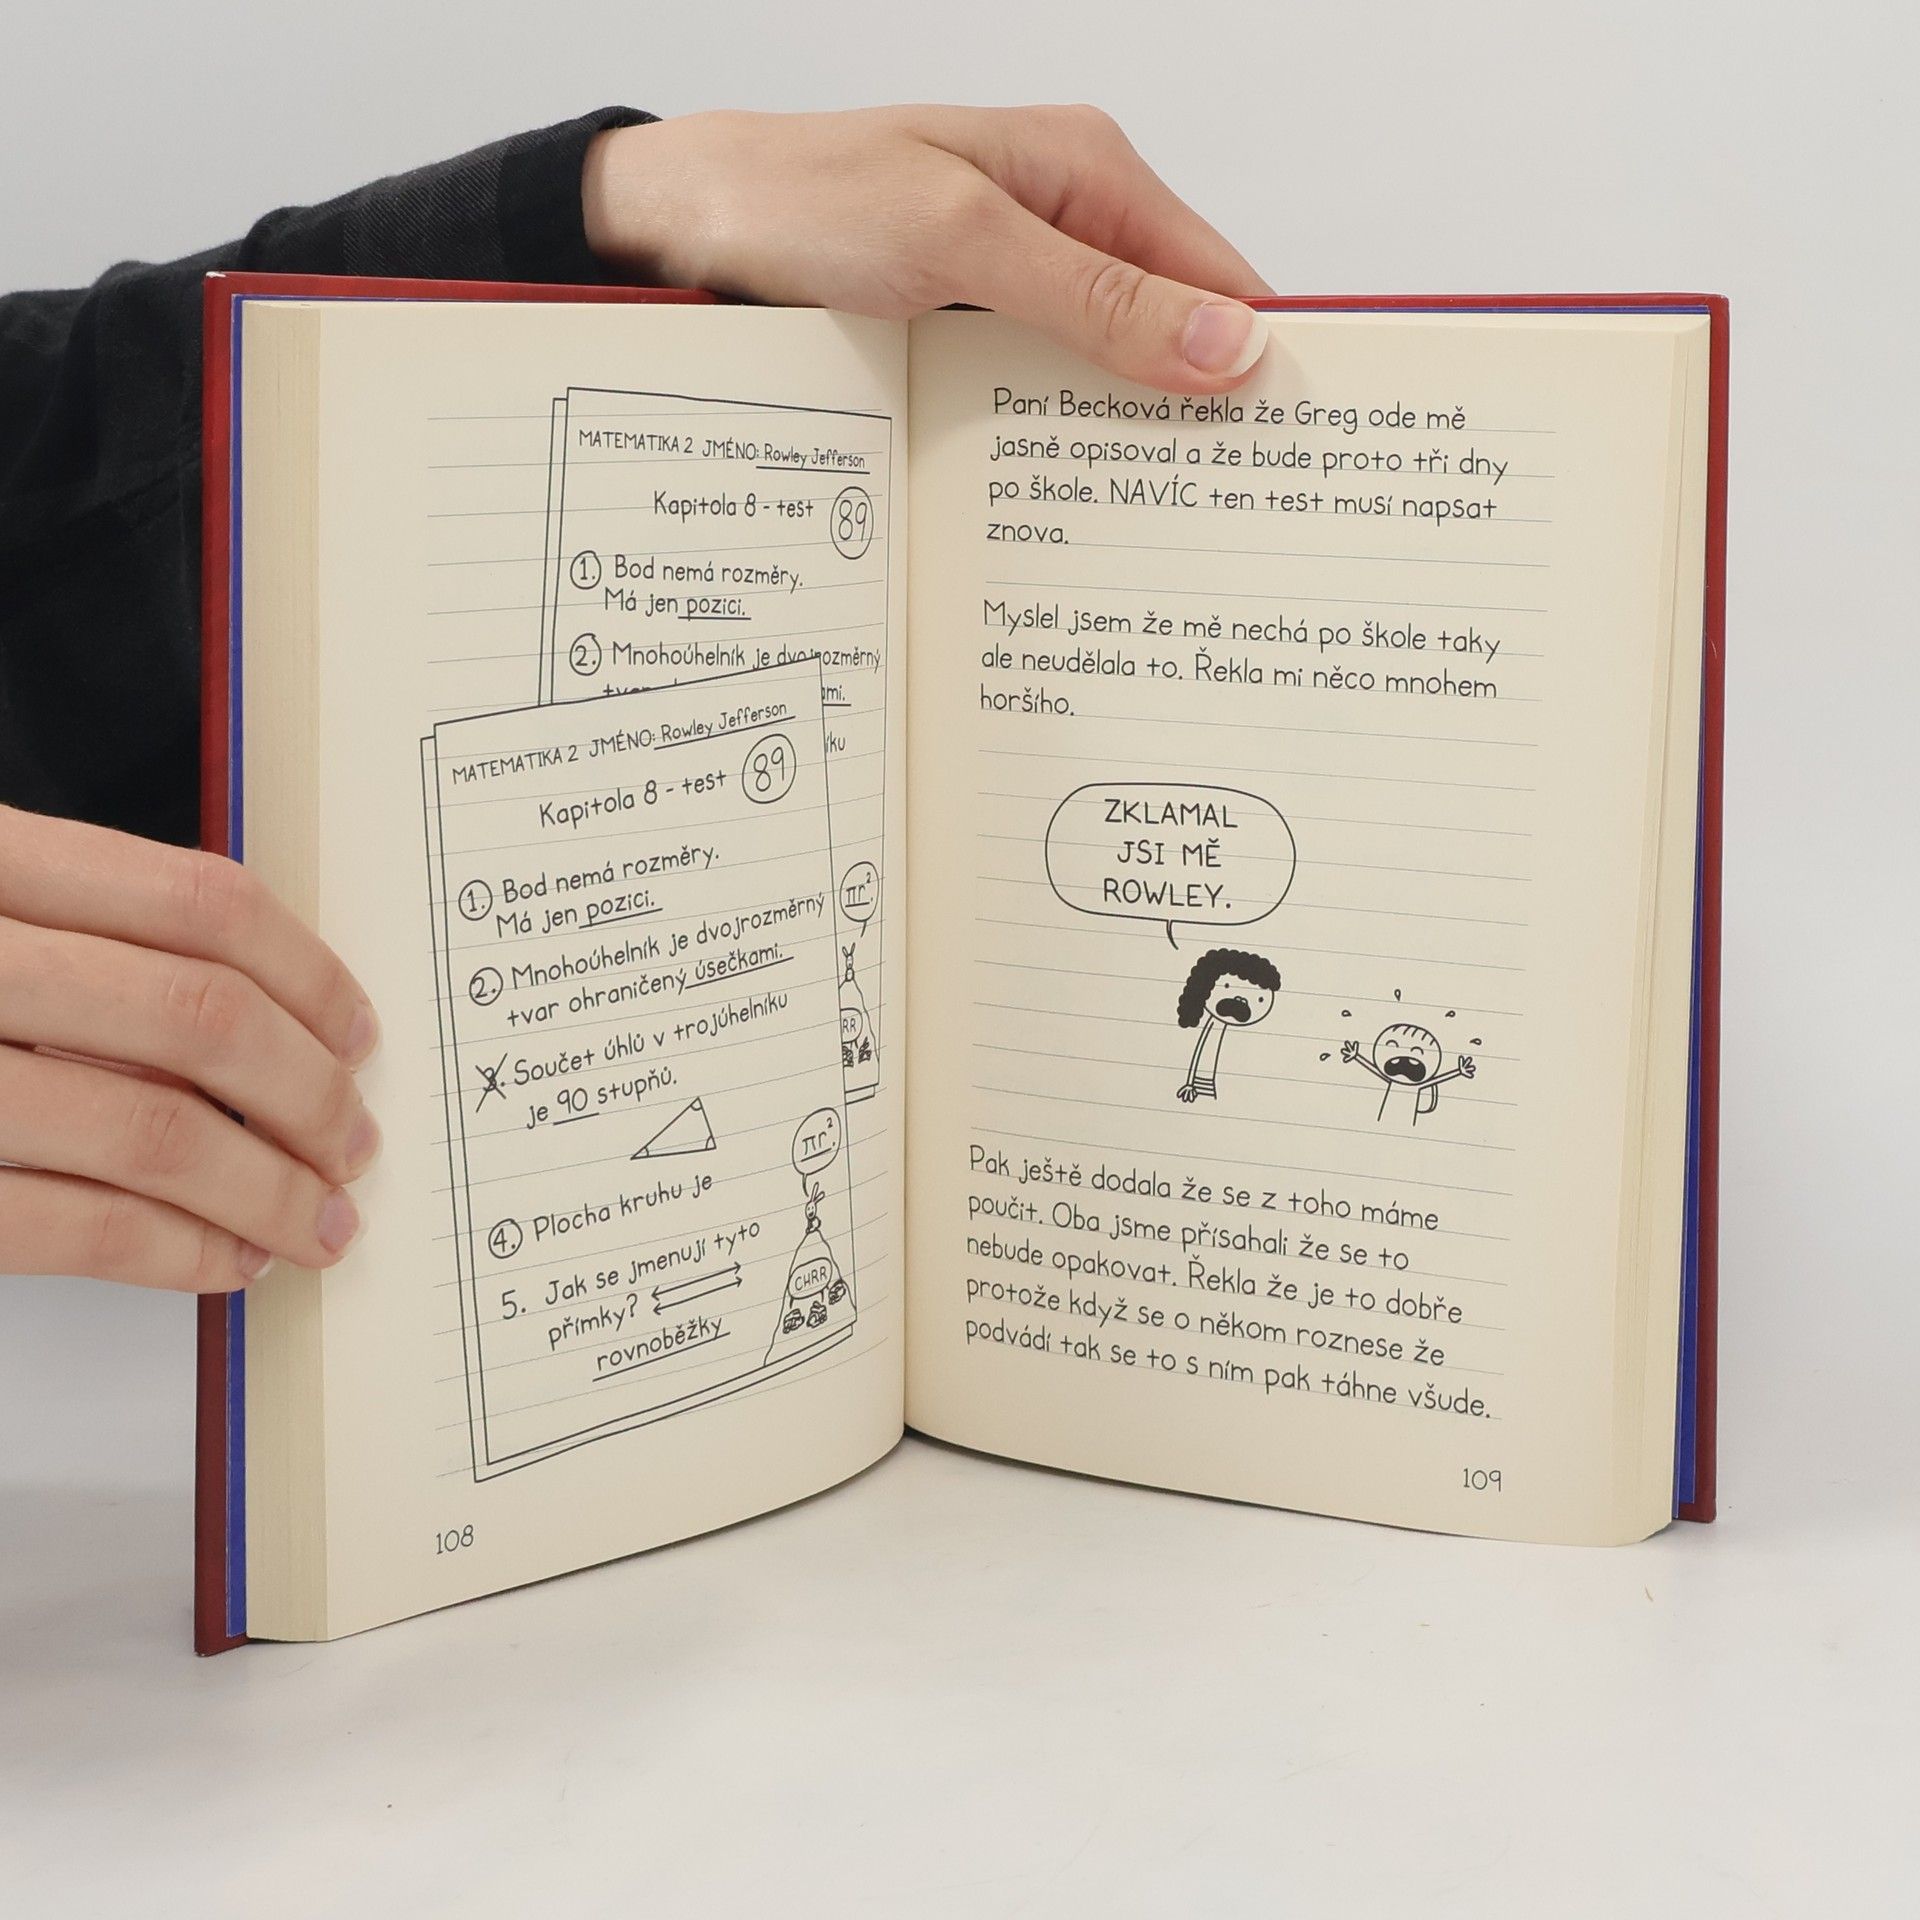 MATEMATIKA 2 JMÉNO: Rowley Jefferson
Kapitola 8 - test 89
1. Bod nemá rozměry.
Má jen pozici.
2. Mnohoúhelník je dvojrozměrný
ami.
íku
MATEMATIKA 2 JMÉNO: Rowley Jefferson
Kapitola 8 - test 89
1. Bod nemá rozměry.
Má jen pozici.
2. Mnohoúhelník je dvojrozměrný
tvar ohraničený úsečkami.
3. Součet úhlů v trojúhelníku
je 90 stupňů.
4. Plocha kruhu je
5. Jak se jmenují tyto
přímky?
rovnoběžky
πr².
RR
πr².
CHRR
108
Paní Becková řekla že Greg ode mě
jasně opisoval a že bude proto tři dny
po škole. NAVÍC ten test musí napsat
znova.
Myslel jsem že mě nechá po škole taky
ale neudělala to. Řekla mi něco mnohem
horšího.
ZKLAMAL
JSI MĚ
ROWLEY.
Pak ještě dodala že se z toho máme
poučit. Oba jsme přísahali že se to
nebude opakovat. Řekla že je to dobře
protože když se o někom roznese že
podvádí tak se to s ním pak táhne všude.
109